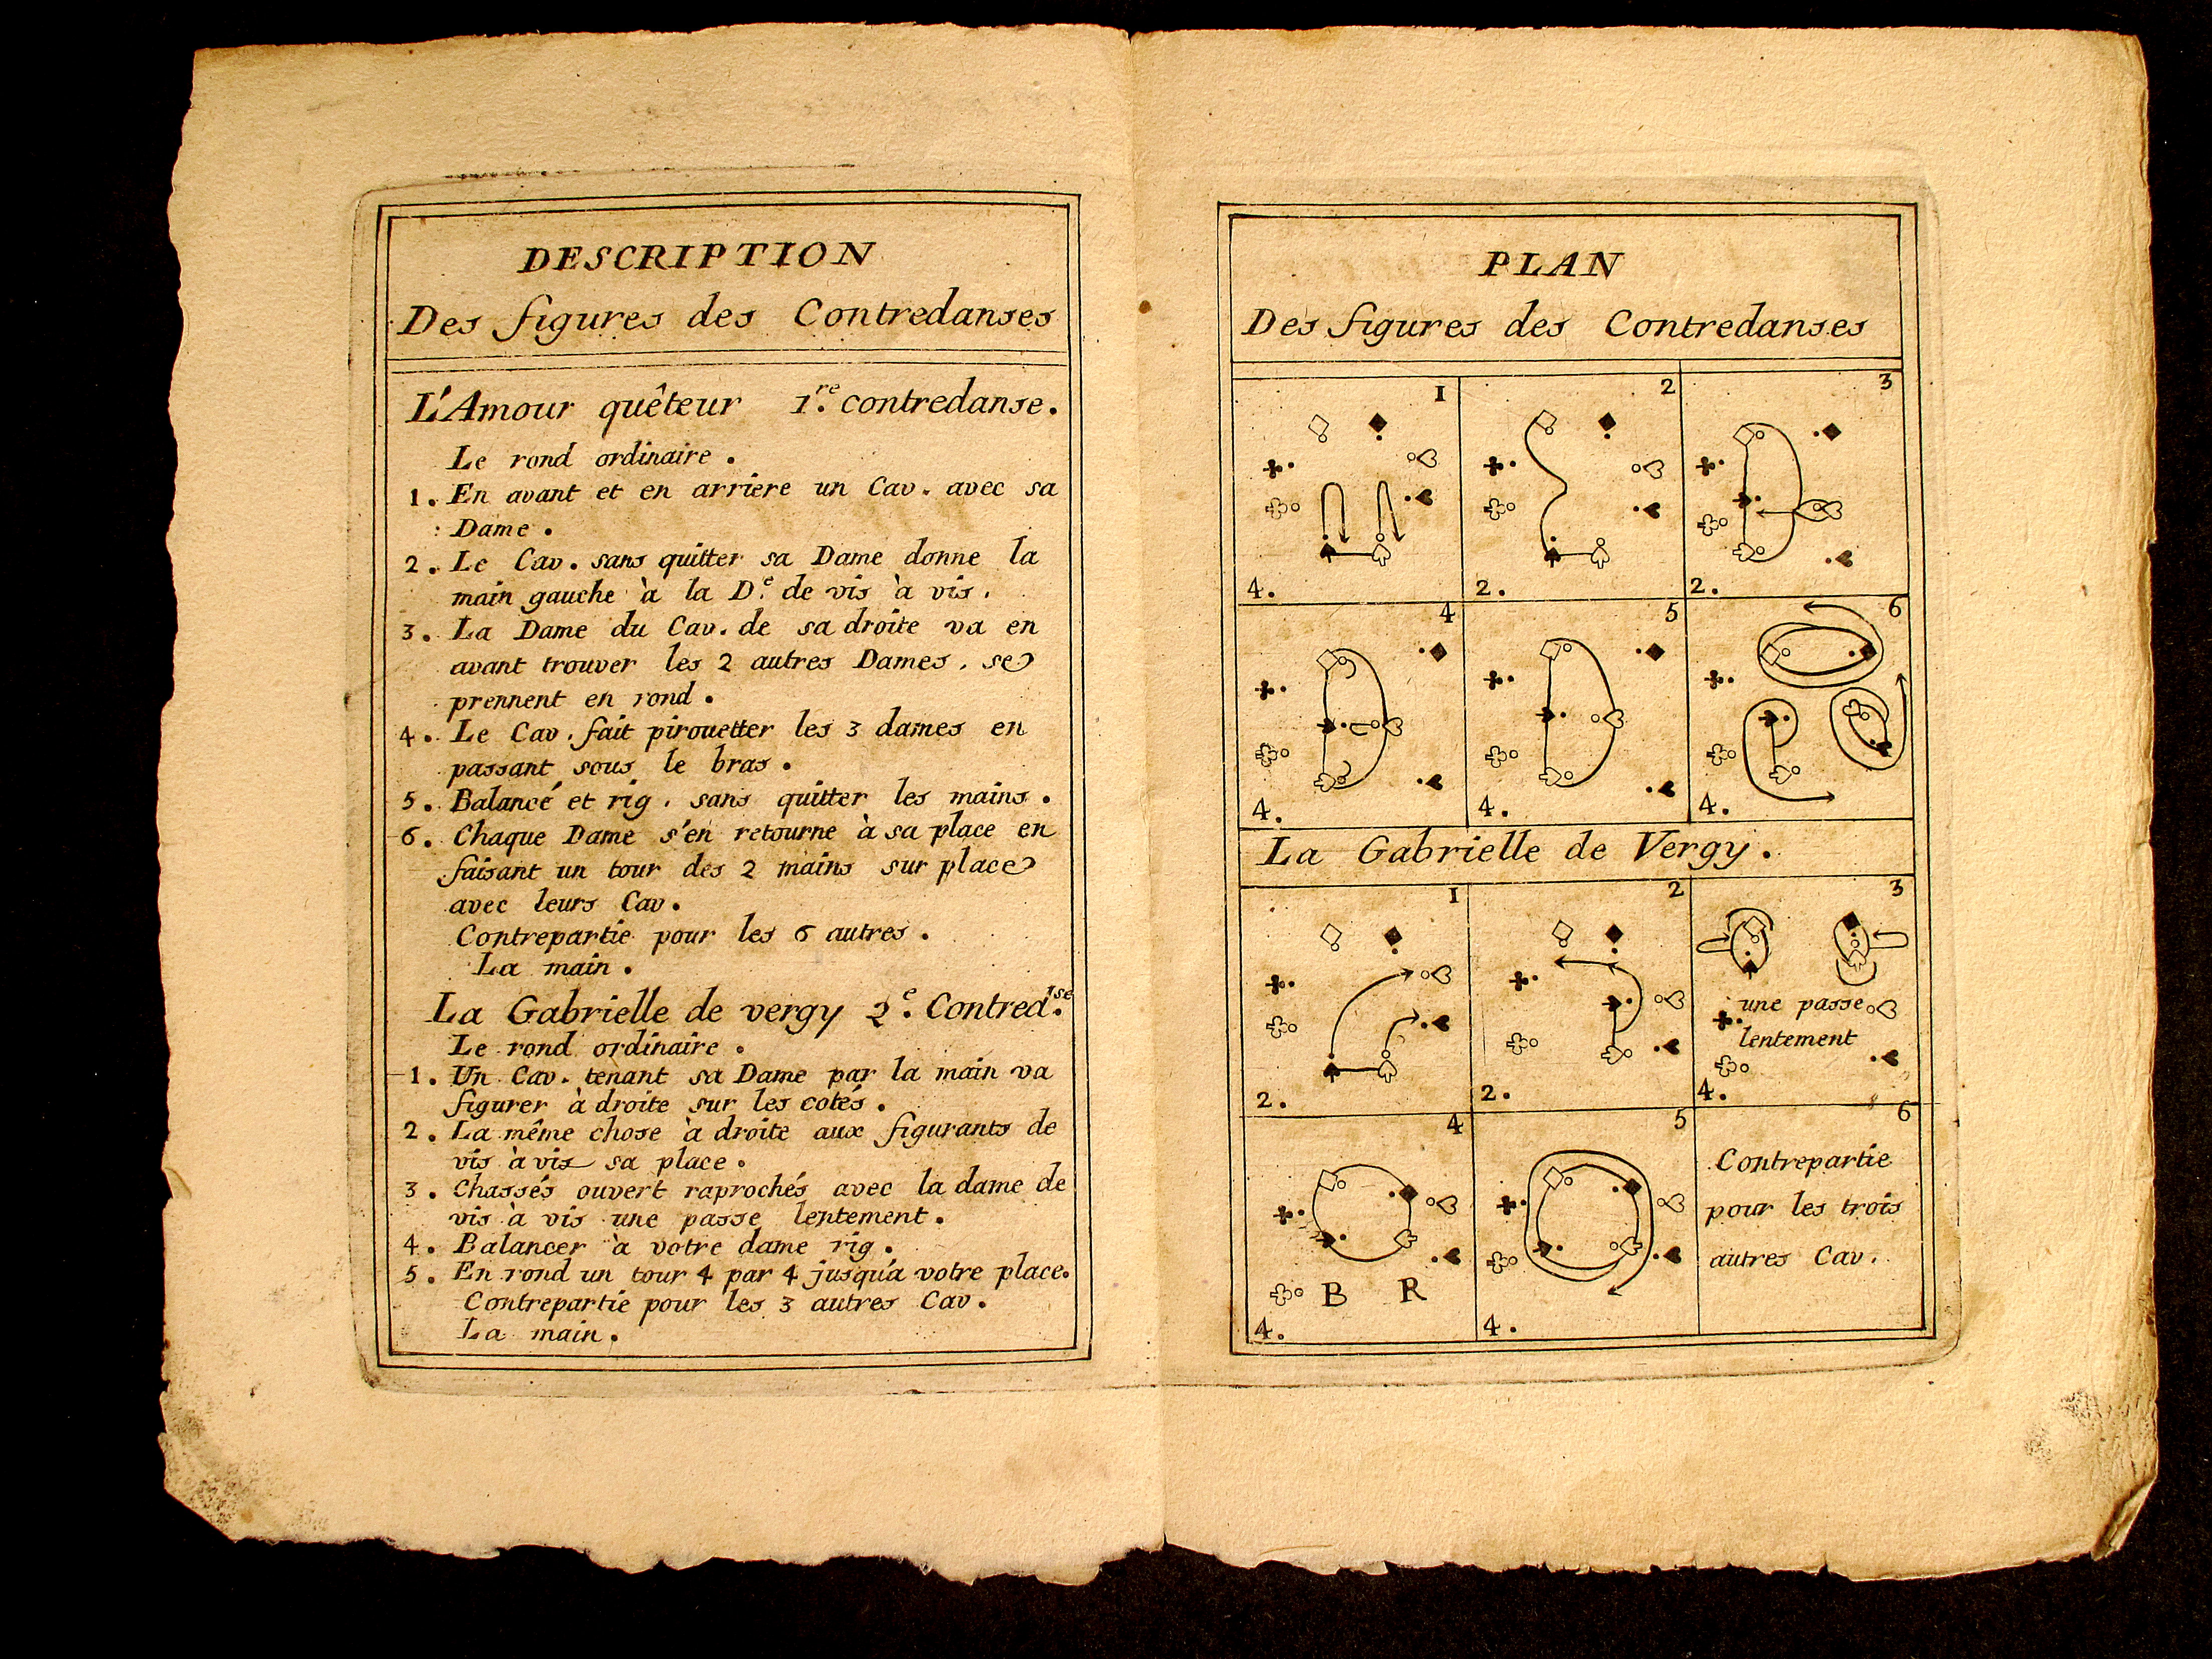 DESCRIPTION
Des figures des Contredanses
L'Amour quêteur 1.re contredanse.
Le rond ordinaire.
1. En avant et en arriere un Cav. avec sa
Dame.
2. Le Cav. sans quitter sa Dame donne la
main gauche à la D.e de vis à vis.
3. La Dame du Cav. de sa droite va en
avant trouver les 2 autres Dames, se
prennent en rond.
4. Le Cav. fait pirouetter les 3 dames en
passant sous le bras.
5. Balancé et rig. sans quitter les mains.
6. Chaque Dame s'en retourne à sa place en
faisant un tour des 2 mains sur place
avec leurs Cav.
Contrepartie pour les 6 autres.
La main.
La Gabrielle de vergy 2.e Contred.se
Le rond ordinaire.
1. Un Cav. tenant sa Dame par la main va
figurer à droite sur les cotés.
2. La même chose à droite aux figurants de
vis à vis sa place.
3. Chassés ouvert raprochés avec la dame de
vis à vis une passe lentement.
4. Balancer à votre dame rig.
5. En rond un tour 4 par 4 jusqu'a votre place.
Contrepartie pour les 3 autres Cav.
La main.
PLAN
Des figures des Contredanses
1 2 3
4. 2. 2.
4 5 6
4. 4. 4.
La Gabrielle de Vergy.
1 2 3
une passe
lentement
2. 2. 4.
4 5 6
Contrepartie
pour les trois
autres Cav.
B R
4. 4.